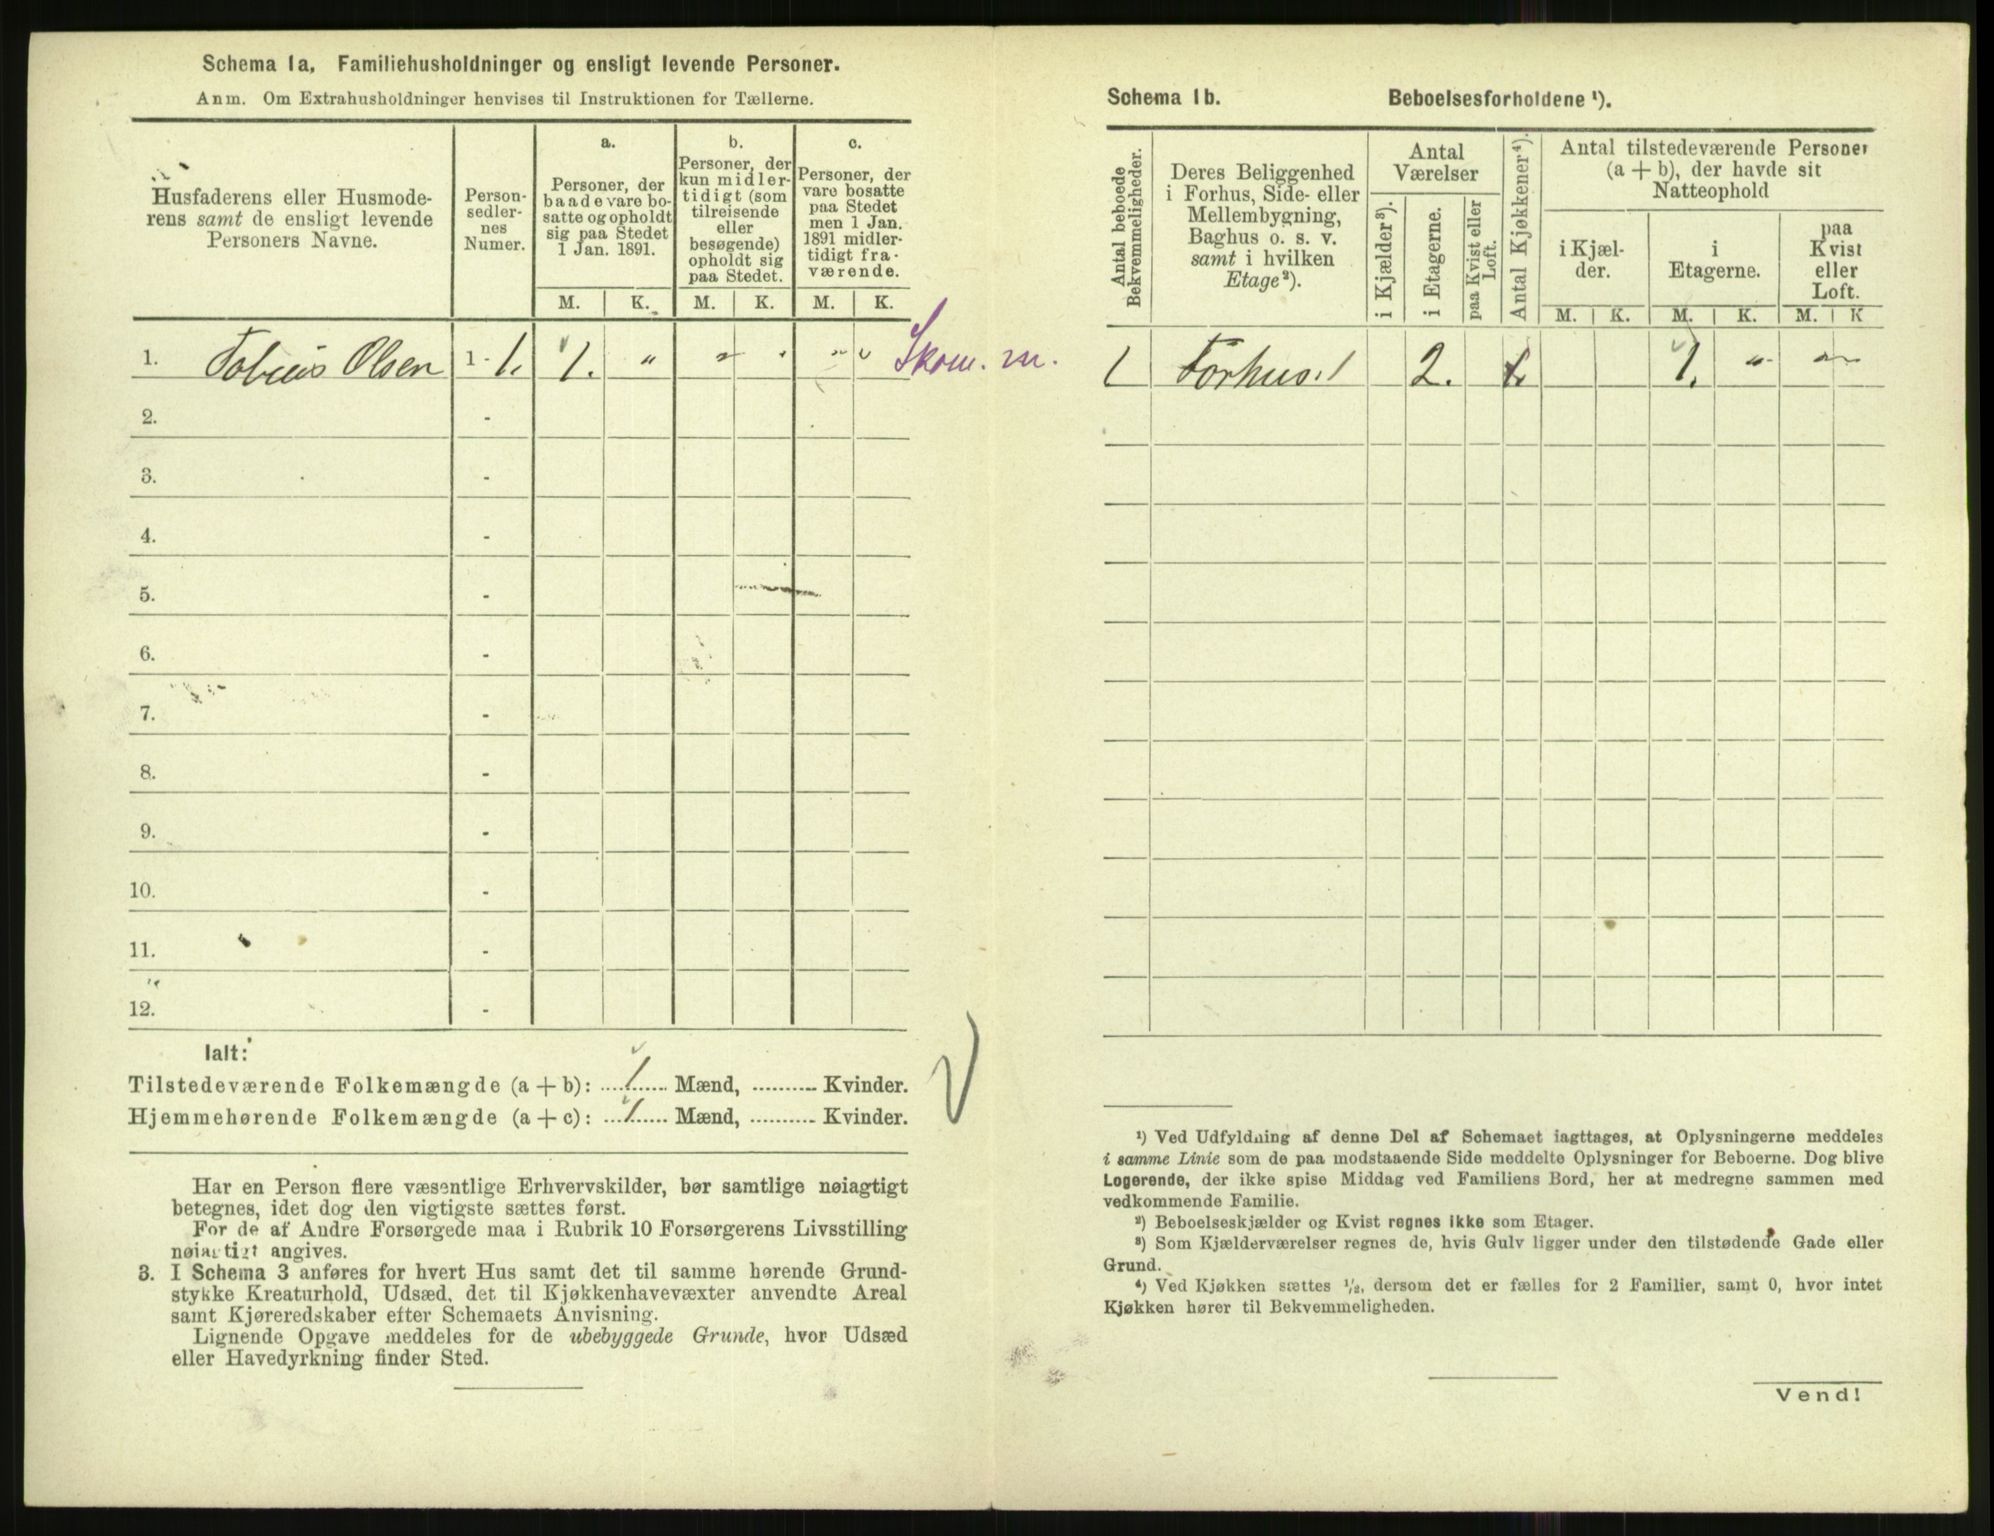 Schema 1a. Familiehusholdninger og ensligt levende Personer.
Anm. Om Extrahusholdninger henvises til Instruktionen for Tællerne.
Husfaderens eller Husmode-
rens samt de ensligt levende
Personers Navne.
Person-
sedler-
nes
Numer.
a.
Personer, der
baade vare bo-
satte og opholdt
sig paa Stedet
1 Jan. 1891.
b.
Personer, der
kun midler-
tidigt (som
tilreisende
eller
besøgende)
opholdt sig
paa Stedet.
c.
Personer, der
vare bosatte
paa Stedet
men 1 Jan.
1891 midler-
tidigt fra-
værende.
M. K. M. K. M. K.
1. Tobias Olsen 1 - 1. 1. " " " " " Skom. m.
2. -
3. -
4. -
5. -
6. -
7. -
8. -
9. -
10. -
11. -
12. -
Ialt:
Tilstedeværende Folkemængde (a + b): 1 Mænd, .......... Kvinder.
Hjemmehørende Folkemængde (a + c): 1 Mænd, .......... Kvinder.
Har en Person flere væsentlige Erhvervskilder, bør samtlige nøiagtigt
betegnes, idet dog den vigtigste sættes først.
For de af Andre Forsørgede maa i Rubrik 10 Forsørgerens Livsstilling
nøiagtigt angives.
3. I Schema 3 anføres for hvert Hus samt det til samme hørende Grund-
stykke Kreaturhold, Udsæd, det til Kjøkkenhavevæxter anvendte Areal
samt Kjøreredskaber efter Schemaets Anvisning.
Lignende Opgave meddeles for de ubebyggede Grunde, hvor Udsæd
eller Havedyrkning finder Sted.
Schema 1b. Beboelsesforholdene ¹).
Antal beboede
Bekvemmeligheder.
Deres Beliggenhed
i Forhus, Side- eller
Mellembygning,
Baghus o. s. v.
samt i hvilken
Etage ²).
Antal
Værelser
i Kjælder ³).
i Etagerne.
paa Kvist eller
Loft.
Antal Kjøkkener ⁴).
Antal tilstedeværende Personer
(a + b), der havde sit
Natteophold
i Kjæl-
der.
i
Etagerne.
paa
Kvist
eller
Loft.
M. K. M. K. M. K
1 Forhus. 1 2. 1. 1. " "
¹) Ved Udfyldning af denne Del af Schemaet iagttages, at Oplysningerne meddeles
i samme Linie som de paa modstaaende Side meddelte Oplysninger for Beboerne. Dog blive
Logerende, der ikke spise Middag ved Familiens Bord, her at medregne sammen med
vedkommende Familie.
²) Beboelseskjælder og Kvist regnes ikke som Etager.
³) Som Kjælderværelser regnes de, hvis Gulv ligger under den tilstødende Gade eller
Grund.
⁴) Ved Kjøkken sættes ½, dersom det er fælles for 2 Familier, samt 0, hvor intet
Kjøkken hører til Bekvemmeligheden.
Vend!